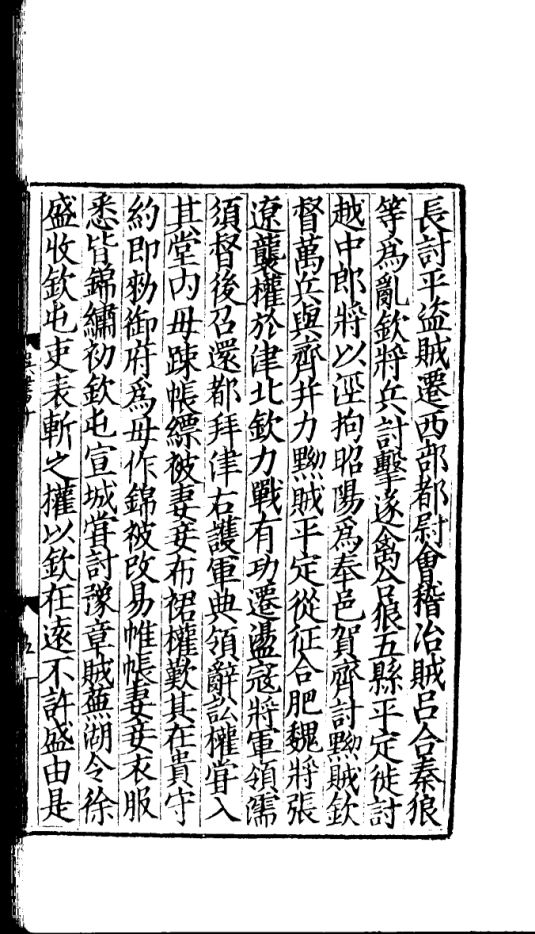 長討平盜賊遷西部都尉會稽冶賊呂合秦狼
等爲亂欽將兵討擊遂禽合狼五縣平定徙討
越中郎將以涇拘昭陽爲奉邑賀齊討黟賊欽
督萬兵與齊并力黟賊平定從征合肥魏將張
遼襲權於津北欽力戰有功遷盪寇將軍領濡
須督後召還都拜津右護軍典領辭訟權甞入
其堂內母踈帳縹被妻妾布裙權歎其在貴守
約即勑御府爲母作錦被改易帷帳妻妾衣服
悉皆錦繡初欽屯宣城甞討豫章賊蕪湖令徐
盛收欽屯吏表斬之權以欽在遠不許盛由是